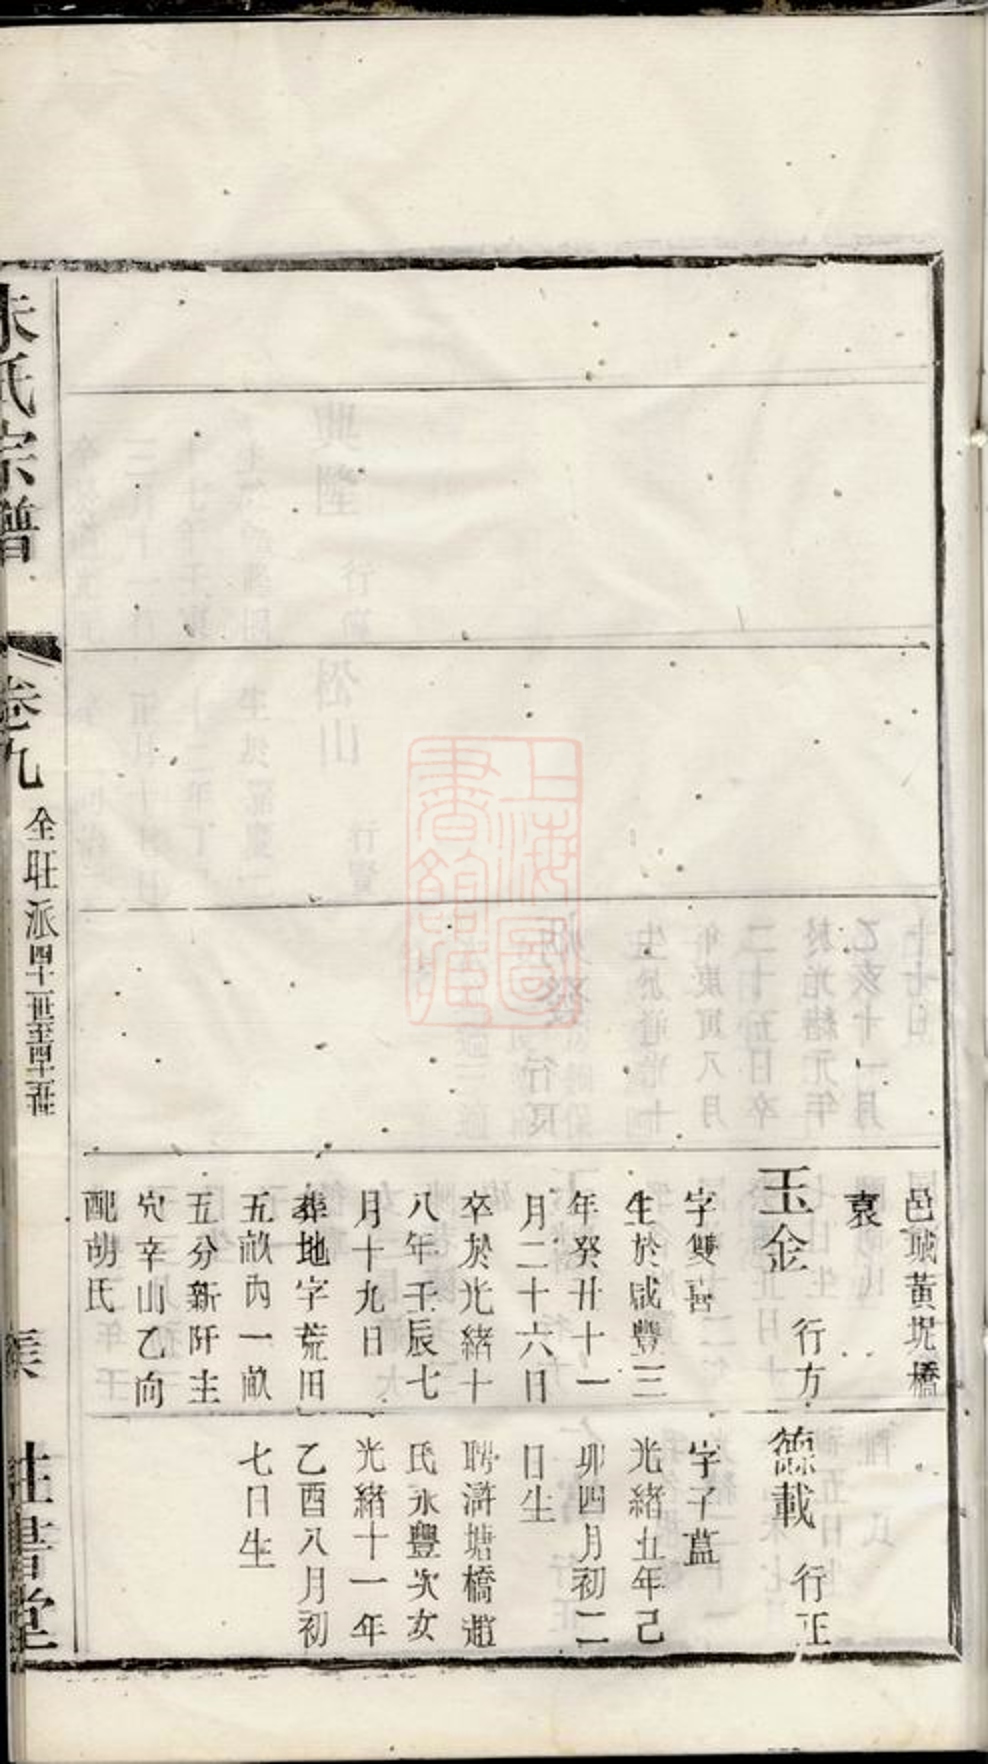 邑城黃坭橋
袁
玉金 行方
字雙喜
生於咸豐三
年癸丑十一
月二十六日
卒於光緒十
八年壬辰七
月十九日
葬地字荒田
五畝內一畝
五分新阡主
穴辛山乙向
配胡氏
德載 行正
字子葢
光緒五年己
卯四月初二
日生
聘滸塘橋趙
氏永豐次女
光緒十一年
乙酉八月初
七日生
朱氏宗譜
卷九
全旺派
上海圖書館藏